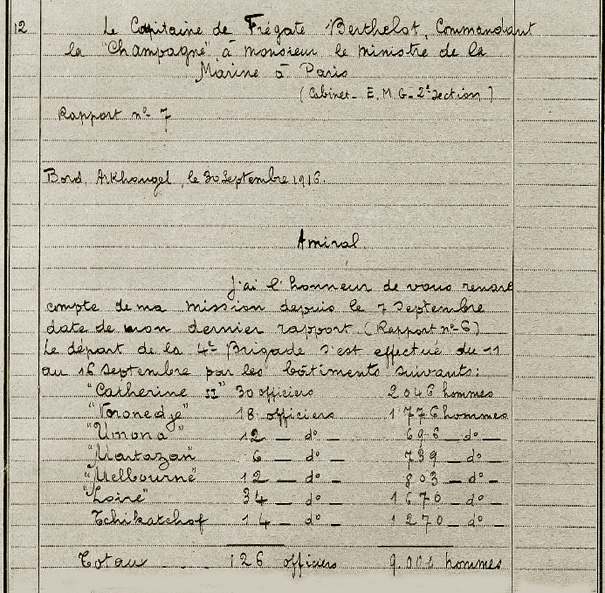 12 Le Capitaine de Frégate Berthelot, Commandant
la "Champagne" à monsieur le ministre de la
Marine à Paris
(Cabinet - E.M.G. - 2e Section)
Rapport n° 7
Bord, Arkhangel, le 30 Septembre 1916.
Amiral
J'ai l'honneur de vous rendre
compte de ma mission depuis le 7 Septembre
date de mon dernier rapport. (Rapport n° 6)
Le départ de la 4e Brigade s'est effectué du 11
au 16 Septembre par les bâtiments suivants:
"Catherine II" 30 officiers 2046 hommes
"Voronedje" 18 officiers 1776 hommes
"Umona" 12 — d° — 696 — d° —
"Martazan" 6 — d° — 739 — d° —
"Melbourne" 12 — d° — 803 — d° —
"Loire" 34 — d° — 1670 — d° —
Tchikatchof 14 — d° — 1270 — d° —
Totaux 126 officiers hommes